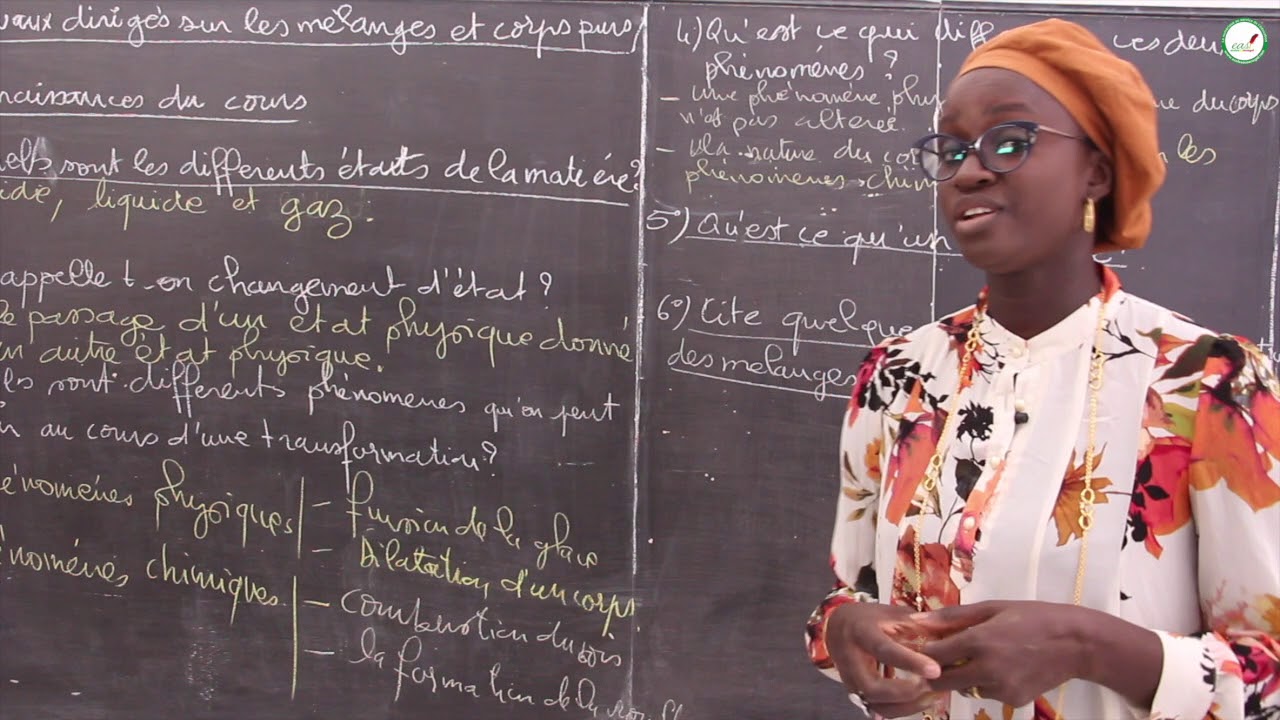 vaux dirigés sur les mélanges et corps purs
naissances du cours
els sont les différents étaits de la matière?
ide, liquide et gaz.
appelle t-on changement d'état ?
le passage d'un état physique donné
un autre état physique.
les sont différents phénomènes qu'on peut
au cours d'une transformation?
énomènes physiques
- fusion de la glace
- Dilatation d'un corps
énomènes chimiques
- combustion du bois
- la formation de la
4) Qu'est ce qui diff ces deu
phénomènes ?
- une phénomène phys du corps
n'est pas altérée.
- la nature du co les
phénomènes chim
5°) Qu'est ce qu'un
6°) Cite quelque
des mélanges
eas!